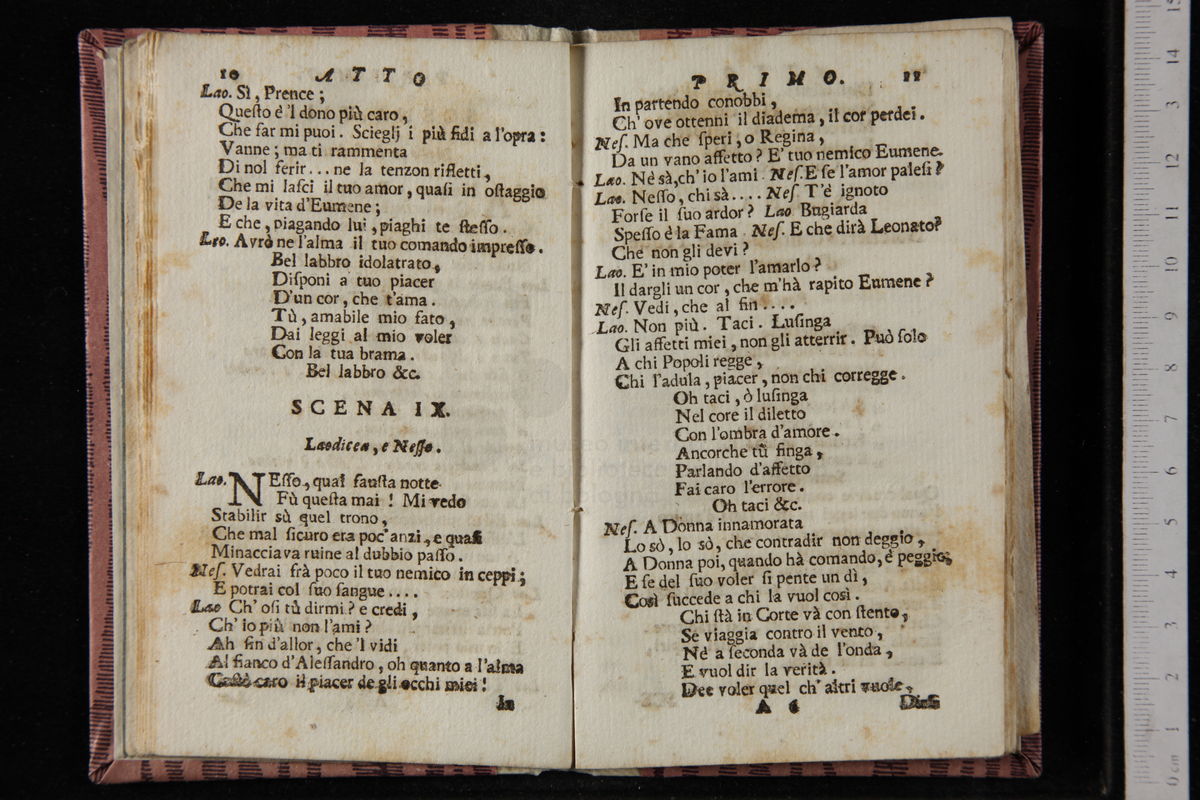 10 ATTO
Lao. Sì, Prence;
Questo è 'l dono più caro,
Che far mi puoi. Scieglj i più fidi a l'opra:
Vanne; ma ti rammenta
Di nol ferir... ne la tenzon rifletti,
Che mi lasci il tuo amor, quasi in ostaggio
De la vita d'Eumene;
E che, piagando lui, piaghi te stesso.
Leo. Avrò ne l'alma il tuo comando impresso.
Bel labbro idolatrato,
Disponi a tuo piacer
D'un cor, che t'ama.
Tù, amabile mio fato,
Dai leggi al mio voler
Con la tua brama.
Bel labbro &c.
SCENA IX.
Laodicea, e Nesso.
Lao. NEsso, qual fausta notte
Fù questa mai! Mi vedo
Stabilir sù quel trono,
Che mal sicuro era poc'anzi, e quasi
Minacciava ruine al dubbio passo.
Nes. Vedrai frà poco il tuo nemico in ceppi;
E potrai col suo sangue....
Lao Ch'osi tù dirmi? e credi,
Ch'io più non l'ami?
Ah fin d'allor, che 'l vidi
Al fianco d'Alessandro, oh quanto a l'alma
Costò caro il piacer de gli occhi miei!
In
PRIMO. 11
In partendo conobbi,
Ch'ove ottenni il diadema, il cor perdei.
Nes. Ma che speri, o Regina,
Da un vano affetto? E' tuo nemico Eumene.
Lao. Nè sà, ch'io l'ami. Nes. E se l'amor palesi?
Lao. Nesso, chi sà.... Nes. T'è ignoto
Forse il suo ardor? Lao Bugiarda
Spesso è la Fama. Nes. E che dirà Leonato?
Che non gli devi?
Lao. E' in mio poter l'amarlo?
Il dargli un cor, che m'hà rapito Eumene?
Nes. Vedi, che al fin....
Lao. Non più. Taci. Lusinga
Gli affetti miei, non gli atterrir. Può solo
A chi Popoli regge,
Chi l'adula, piacer, non chi corregge.
Oh taci, ò lusinga
Nel core il diletto
Con l'ombra d'amore.
Ancorche tù finga,
Parlando d'affetto
Fai caro l'errore.
Oh taci &c.
Nes. A Donna innamorata
Lo sò, lo sò, che contradir non deggio,
A Donna poi, quando hà comando, è peggio;
E se del suo voler si pente un dì,
Così succede a chi la vuol così.
Chi stà in Corte và con stento,
Se viaggia contro il vento,
Nè a seconda và de l'onda,
E vuol dir la verità.
Dee voler quel ch'altri vuole,
A 6